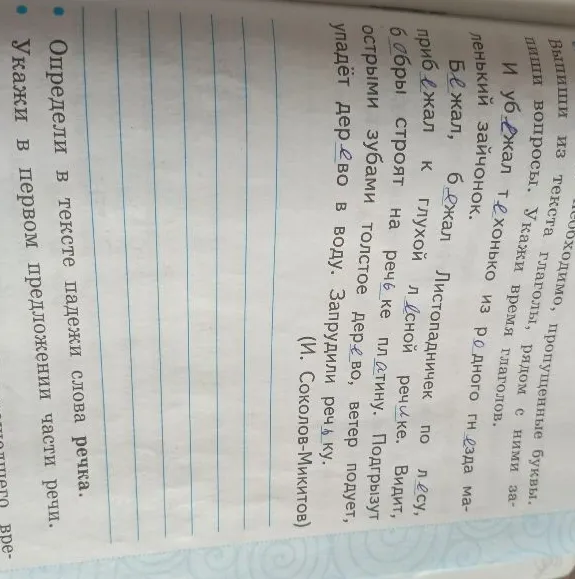 необходимо, пропущенные буквы.
Выпиши из текста глаголы, рядом с ними за-
пиши вопросы. Укажи время глаголов.
И убежал техонько из родного гнезда ма-
ленький зайчонок.
Бежал, бежал Листопадничек по лесу,
прибежал к глухой лесной речике. Видит,
бобры строят на речьке платину. Подгрызут
острыми зубами толстое дерево, ветер подует,
упадёт дерево в воду. Запрудили речьку.
(И. Соколов-Микитов)
• Определи в тексте падежи слова речка.
• Укажи в первом предложении части речи.
вре-